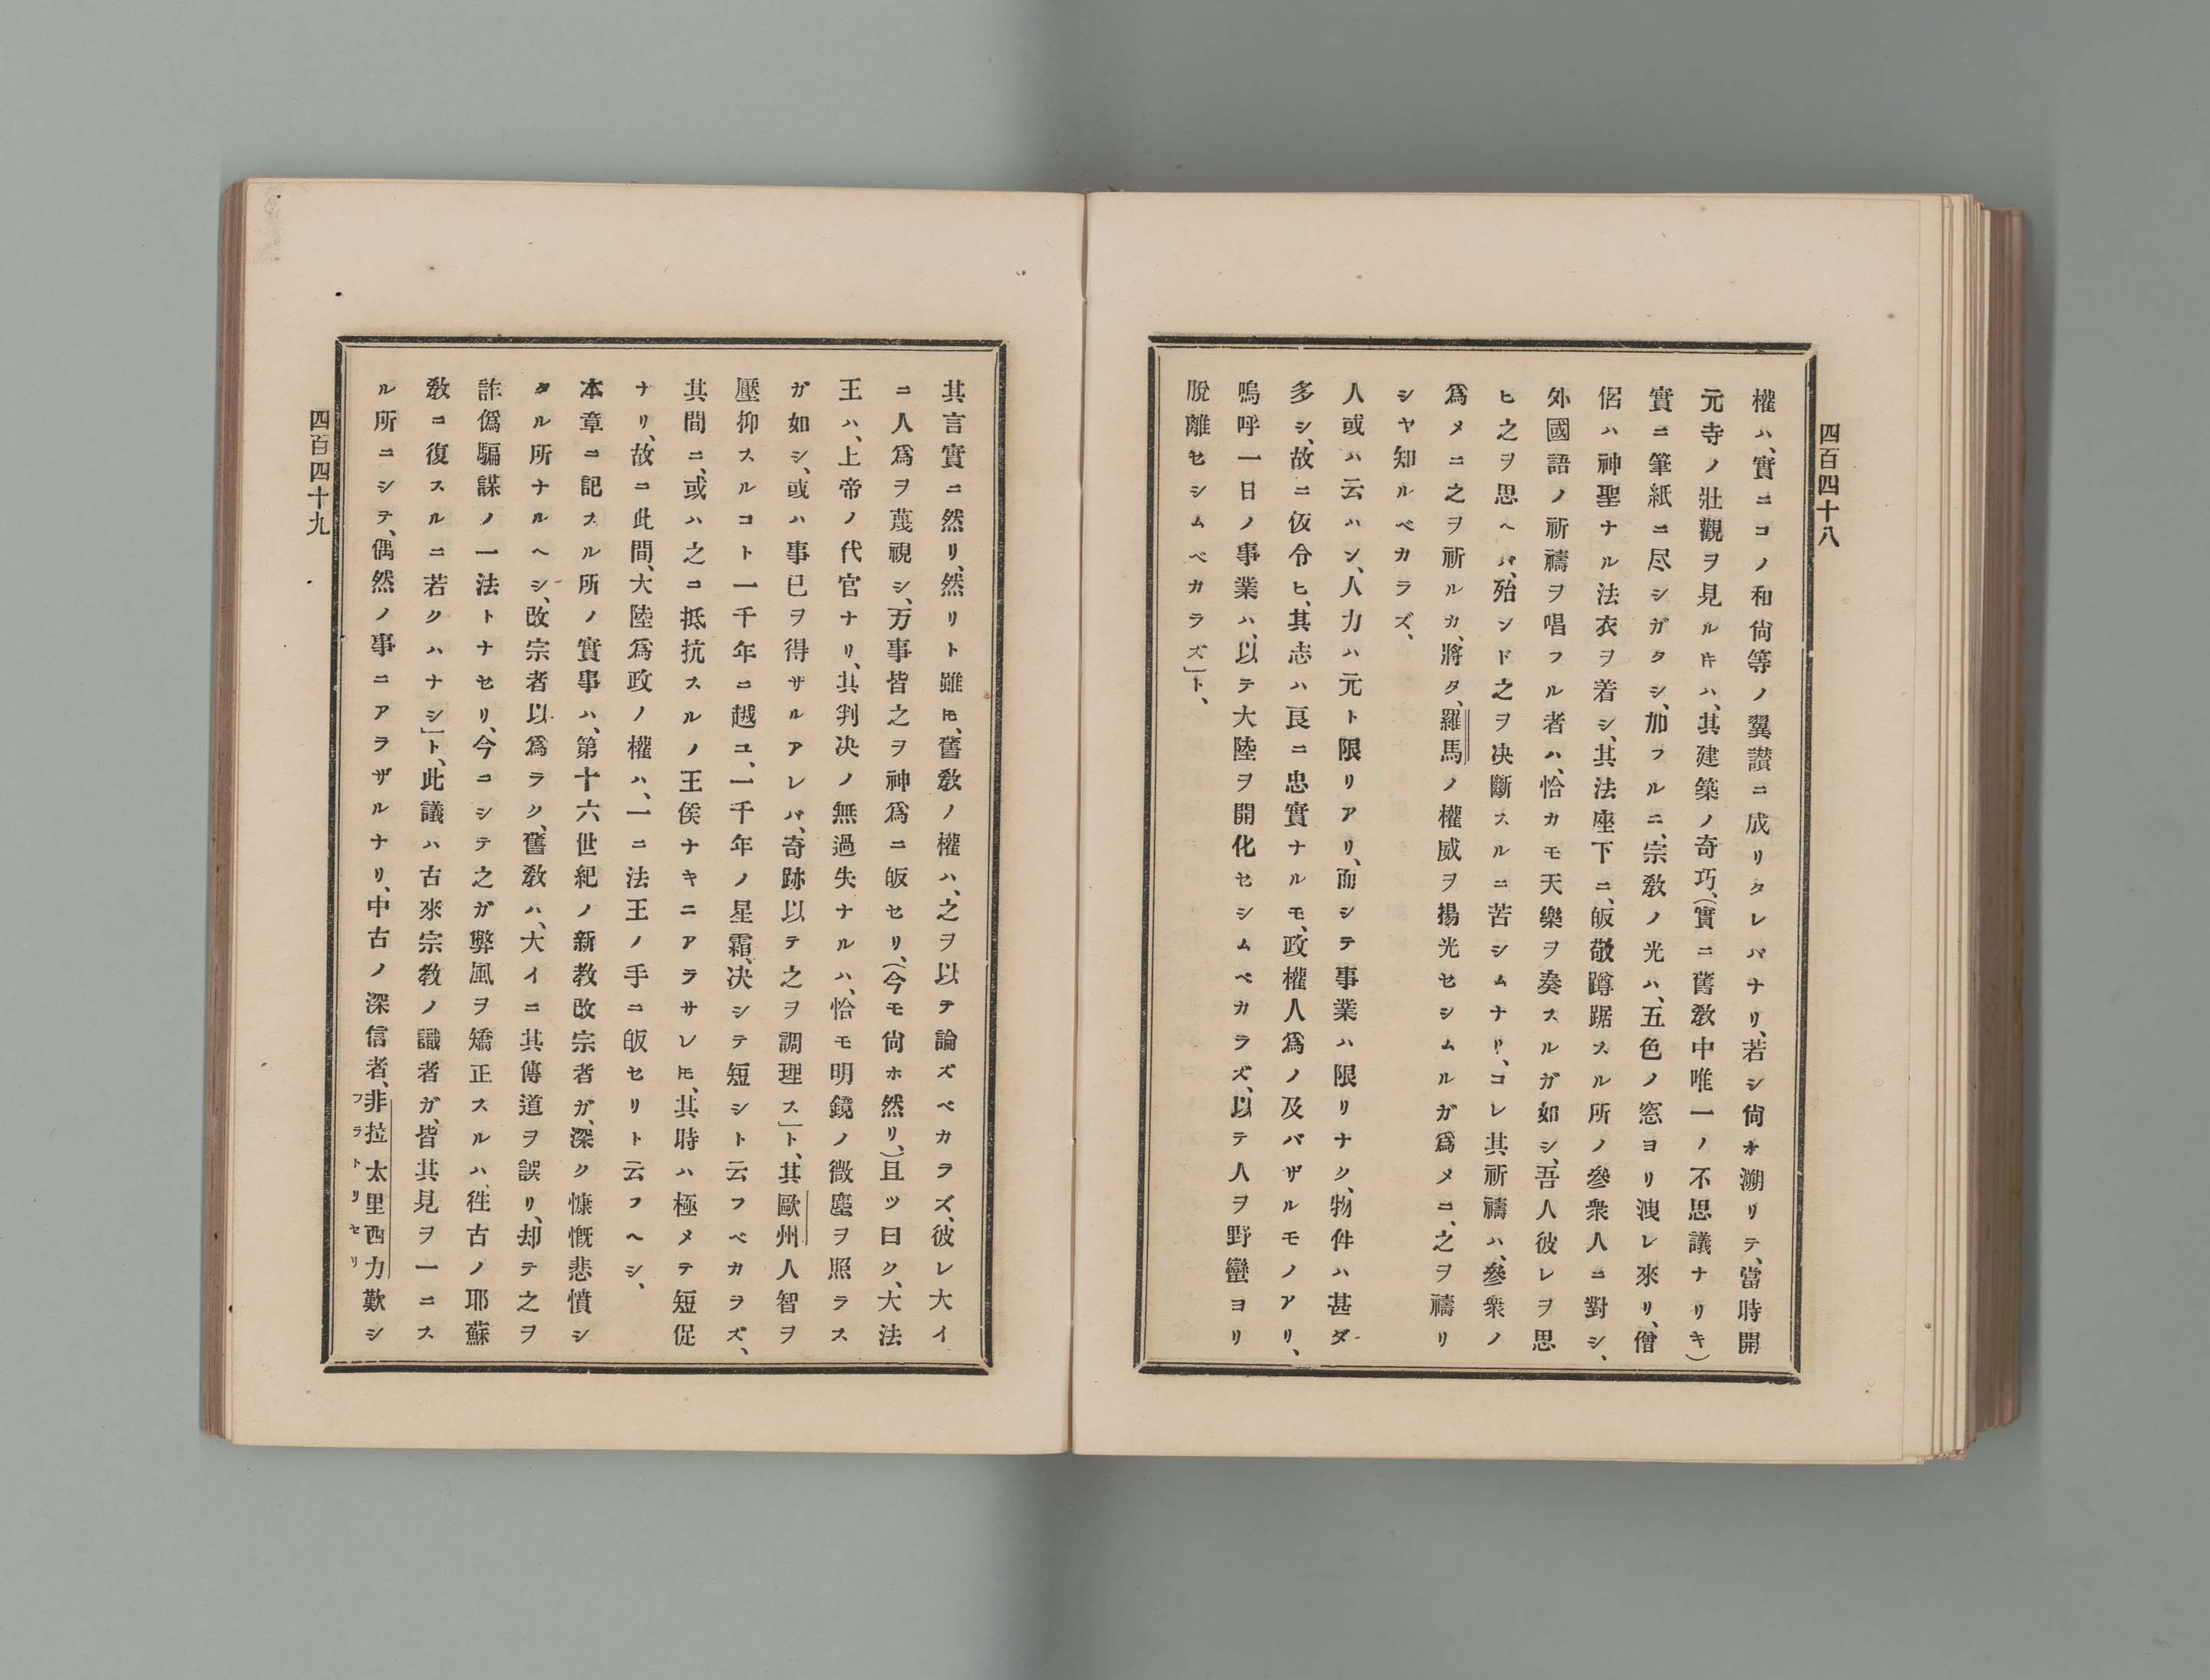 四百四十八
權ハ、實ニコノ和尙等ノ翼讃ニ成リタレバナリ、若シ尙ホ溯リテ、當時開
元寺ノ壯觀ヲ見ルキハ、其建築ノ奇巧、(實ニ舊敎中唯一ノ不思議ナリキ)
實ニ筆紙ニ尽シガタシ、加フルニ、宗敎ノ光ハ、五色ノ窓ヨリ洩レ來リ、僧
侶ハ神聖ナル法衣ヲ着シ、其法座下ニ、皈敬蹲踞スル所ノ參衆人ニ對シ、
外國語ノ祈禱ヲ唱フル者ハ、恰カモ天樂ヲ奏スルガ如シ、吾人彼レヲ思
ヒ之ヲ思ヘバ、殆ンド之ヲ决斷スルニ苦シムナリ、コレ其祈禱ハ、參衆ノ
爲メニ之ヲ祈ルカ、將タ、羅馬ノ權威ヲ揚光セシムルガ爲メニ、之ヲ禱リ
シヤ知ルベカラズ、
人或ハ云ハン、人力ハ元ト限リアリ、而シテ事業ハ限リナク、物件ハ甚ダ
多シ、故ニ仮令ヒ、其志ハ良ニ忠實ナルモ、政權人爲ノ及バザルモノアリ、
嗚呼一日ノ事業ハ、以テ大陸ヲ開化セシムベカラズ、以テ人ヲ野蠻ヨリ
脫離セシムベカラズ」ト、
其言實ニ然リ、然リト雖ヒ、舊敎ノ權ハ、之ヲ以テ論ズベカラズ、彼レ大イ
ニ人爲ヲ蔑視シ、万事皆之ヲ神爲ニ皈セリ、(今モ尙ホ然リ、)且ツ曰ク、大法
王ハ、上帝ノ代官ナリ、其判决ノ無過失ナルハ、恰モ明鏡ノ微塵ヲ照ラス
ガ如シ、或ハ事已ヲ得ザルアレバ、奇跡以テ之ヲ調理ス」ト、其歐州人智ヲ
壓抑スルコト一千年ニ越ユ、一千年ノ星霜、决シテ短シト云フベカラズ、
其間ニ、或ハ之ニ抵抗スルノ王侯ナキニアラサレヒ、其時ハ極メテ短促
ナリ、故ニ此間、大陸爲政ノ權ハ、一ニ法王ノ手ニ皈セリト云フヘシ、
本章ニ記スル所ノ實事ハ、第十六世紀ノ新教改宗者ガ、深ク慷慨悲憤シ
タル所ナルヘシ、改宗者以爲ラク、舊敎ハ、大イニ其傳道ヲ誤リ、却テ之ヲ
詐僞騙謀ノ一法トナセリ、今ニシテ之ガ弊風ヲ矯正スルハ、徃古ノ耶蘇
敎ニ復スルニ若クハナシ」ト、此議ハ古來宗教ノ識者ガ、皆其見ヲ一ニス
ル所ニシテ、偶然ノ事ニアラザルナリ、中古ノ深信者、非拉太里西力歎シ
フラトリセリ
四百四十九